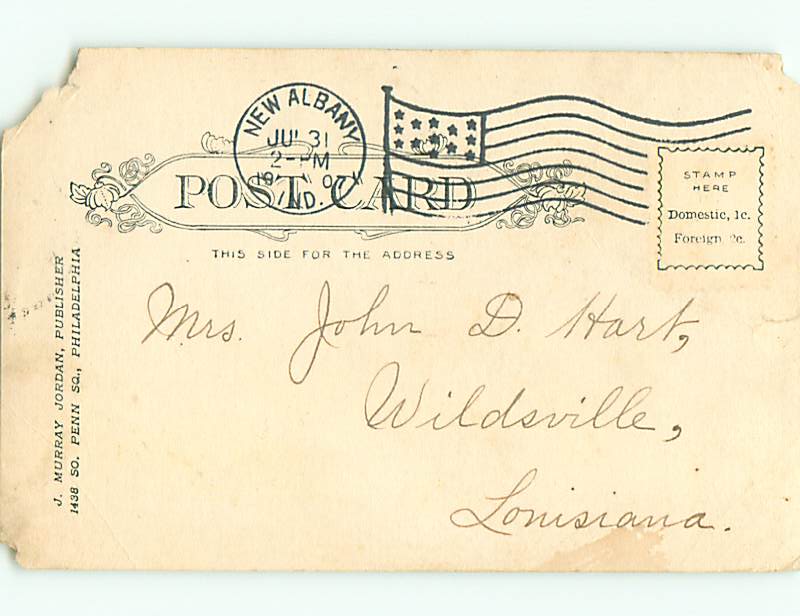 NEW ALBANY
JUL 31
2-PM
1907
IND.
POST CARD
THIS SIDE FOR THE ADDRESS
STAMP
HERE
Domestic, 1c.
Foreign, 2c.
Mrs. John D. Hart,
Wildsville,
Louisiana.
J. MURRAY JORDAN, PUBLISHER
1438 SO. PENN SQ., PHILADELPHIA